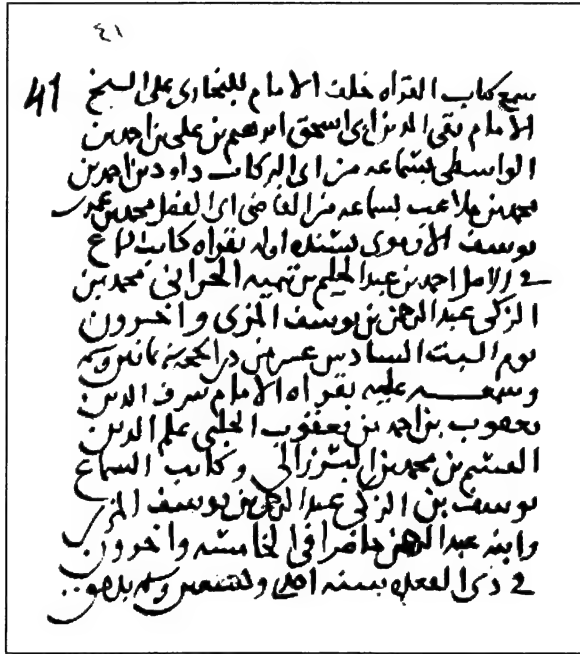 ٤١
41
سمع كتاب القراه خلف الامام للبخارى على الشيخ
الامام تقى الدين ابى اسحق ابرهيم بن على بن احمد بن
الواسطى بسماعه من ابى البركات داود بن احمد بن
محمد بن ملاعب بسماعه من القاضى ابى الفضل محمد بن عمر بن
يوسف الارموى بسنده اوله بقراه كاتب السماع
فى الاصل احمد بن عبد الحليم بن تيميه الحرانى محمد بن
الزكى عبد الرحمن بن يوسف المزى واخرون
يوم السبت السادس عشر من ذى الحجه سنه ثمانين وستمه
وسمعـــه عليه بقراه الامام شرف الدين
يعقوب بن احمد بن يعقوب الحلبى علم الدين
القسم بن محمد بن البرزالى وكاتب السماع
يوسف بن الزكى عبد الرحمن بن يوسف المزى
وابنه عبد الرحمن حاضرا فى الخامسه واخرون
فى ذى القعده سنه احدى وتسعين وستمه